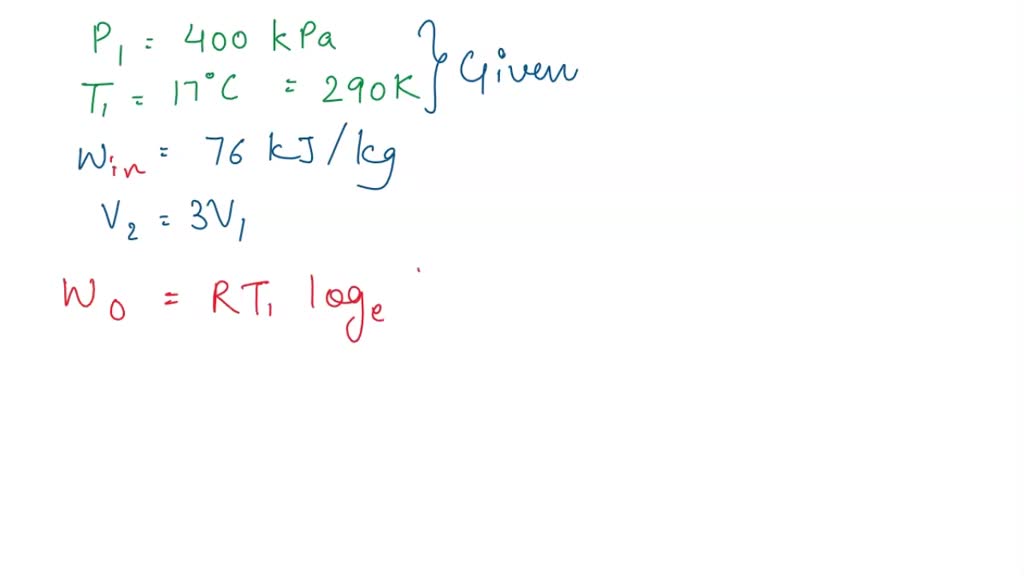 P₁ = 400 kPa
T₁ = 17°C = 290K } Given
Win = 76 kJ/kg
V₂ = 3V₁
W₀ = RT₁ logₑ